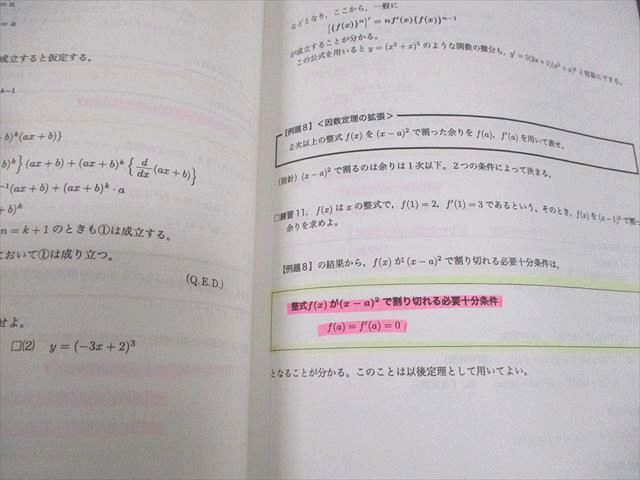 = a
= a
成立すると仮定する。
k−1
+ b)^k(ax + b)}
b)^k}(ax + b) + (ax + b)^k{d/dx(ax + b)}
^{-1}(ax + b) + (ax + b)^k · a
+ b)^k
n = k + 1 のときも①は成立する。
において①は成り立つ。
(Q.E.D.)
せよ。
□(2) y = (−3x + 2)^3
などとなり，ここから，一般に
[{f(x)}^n]′ = nf′(x){f(x)}^{n−1}
が成立することが分かる。
この公式を用いると y = (x^2 + x)^5 のような関数の微分も，y′ = 5(2x + 1)(x^2 + x)^4 と容易にできる。
【例題8】<因数定理の拡張>
2次以上の整式 f(x) を (x − a)^2 で割った余りを f(a)，f′(a) を用いて表せ。
(指針) (x − a)^2 で割るのは余りは1次以下。2つの条件によって決まる。
□練習11．f(x) は x の整式で，f(1) = 2，f′(1) = 3 であるという。そのとき，f(x) を (x − 1)^2 で割った
余りを求めよ。
【例題8】の結果から，f(x) が (x − a)^2 で割り切れる必要十分条件は，
整式 f(x) が (x − a)^2 で割り切れる必要十分条件
f(a) = f′(a) = 0
となることが分かる。このことは以後定理として用いてよい。